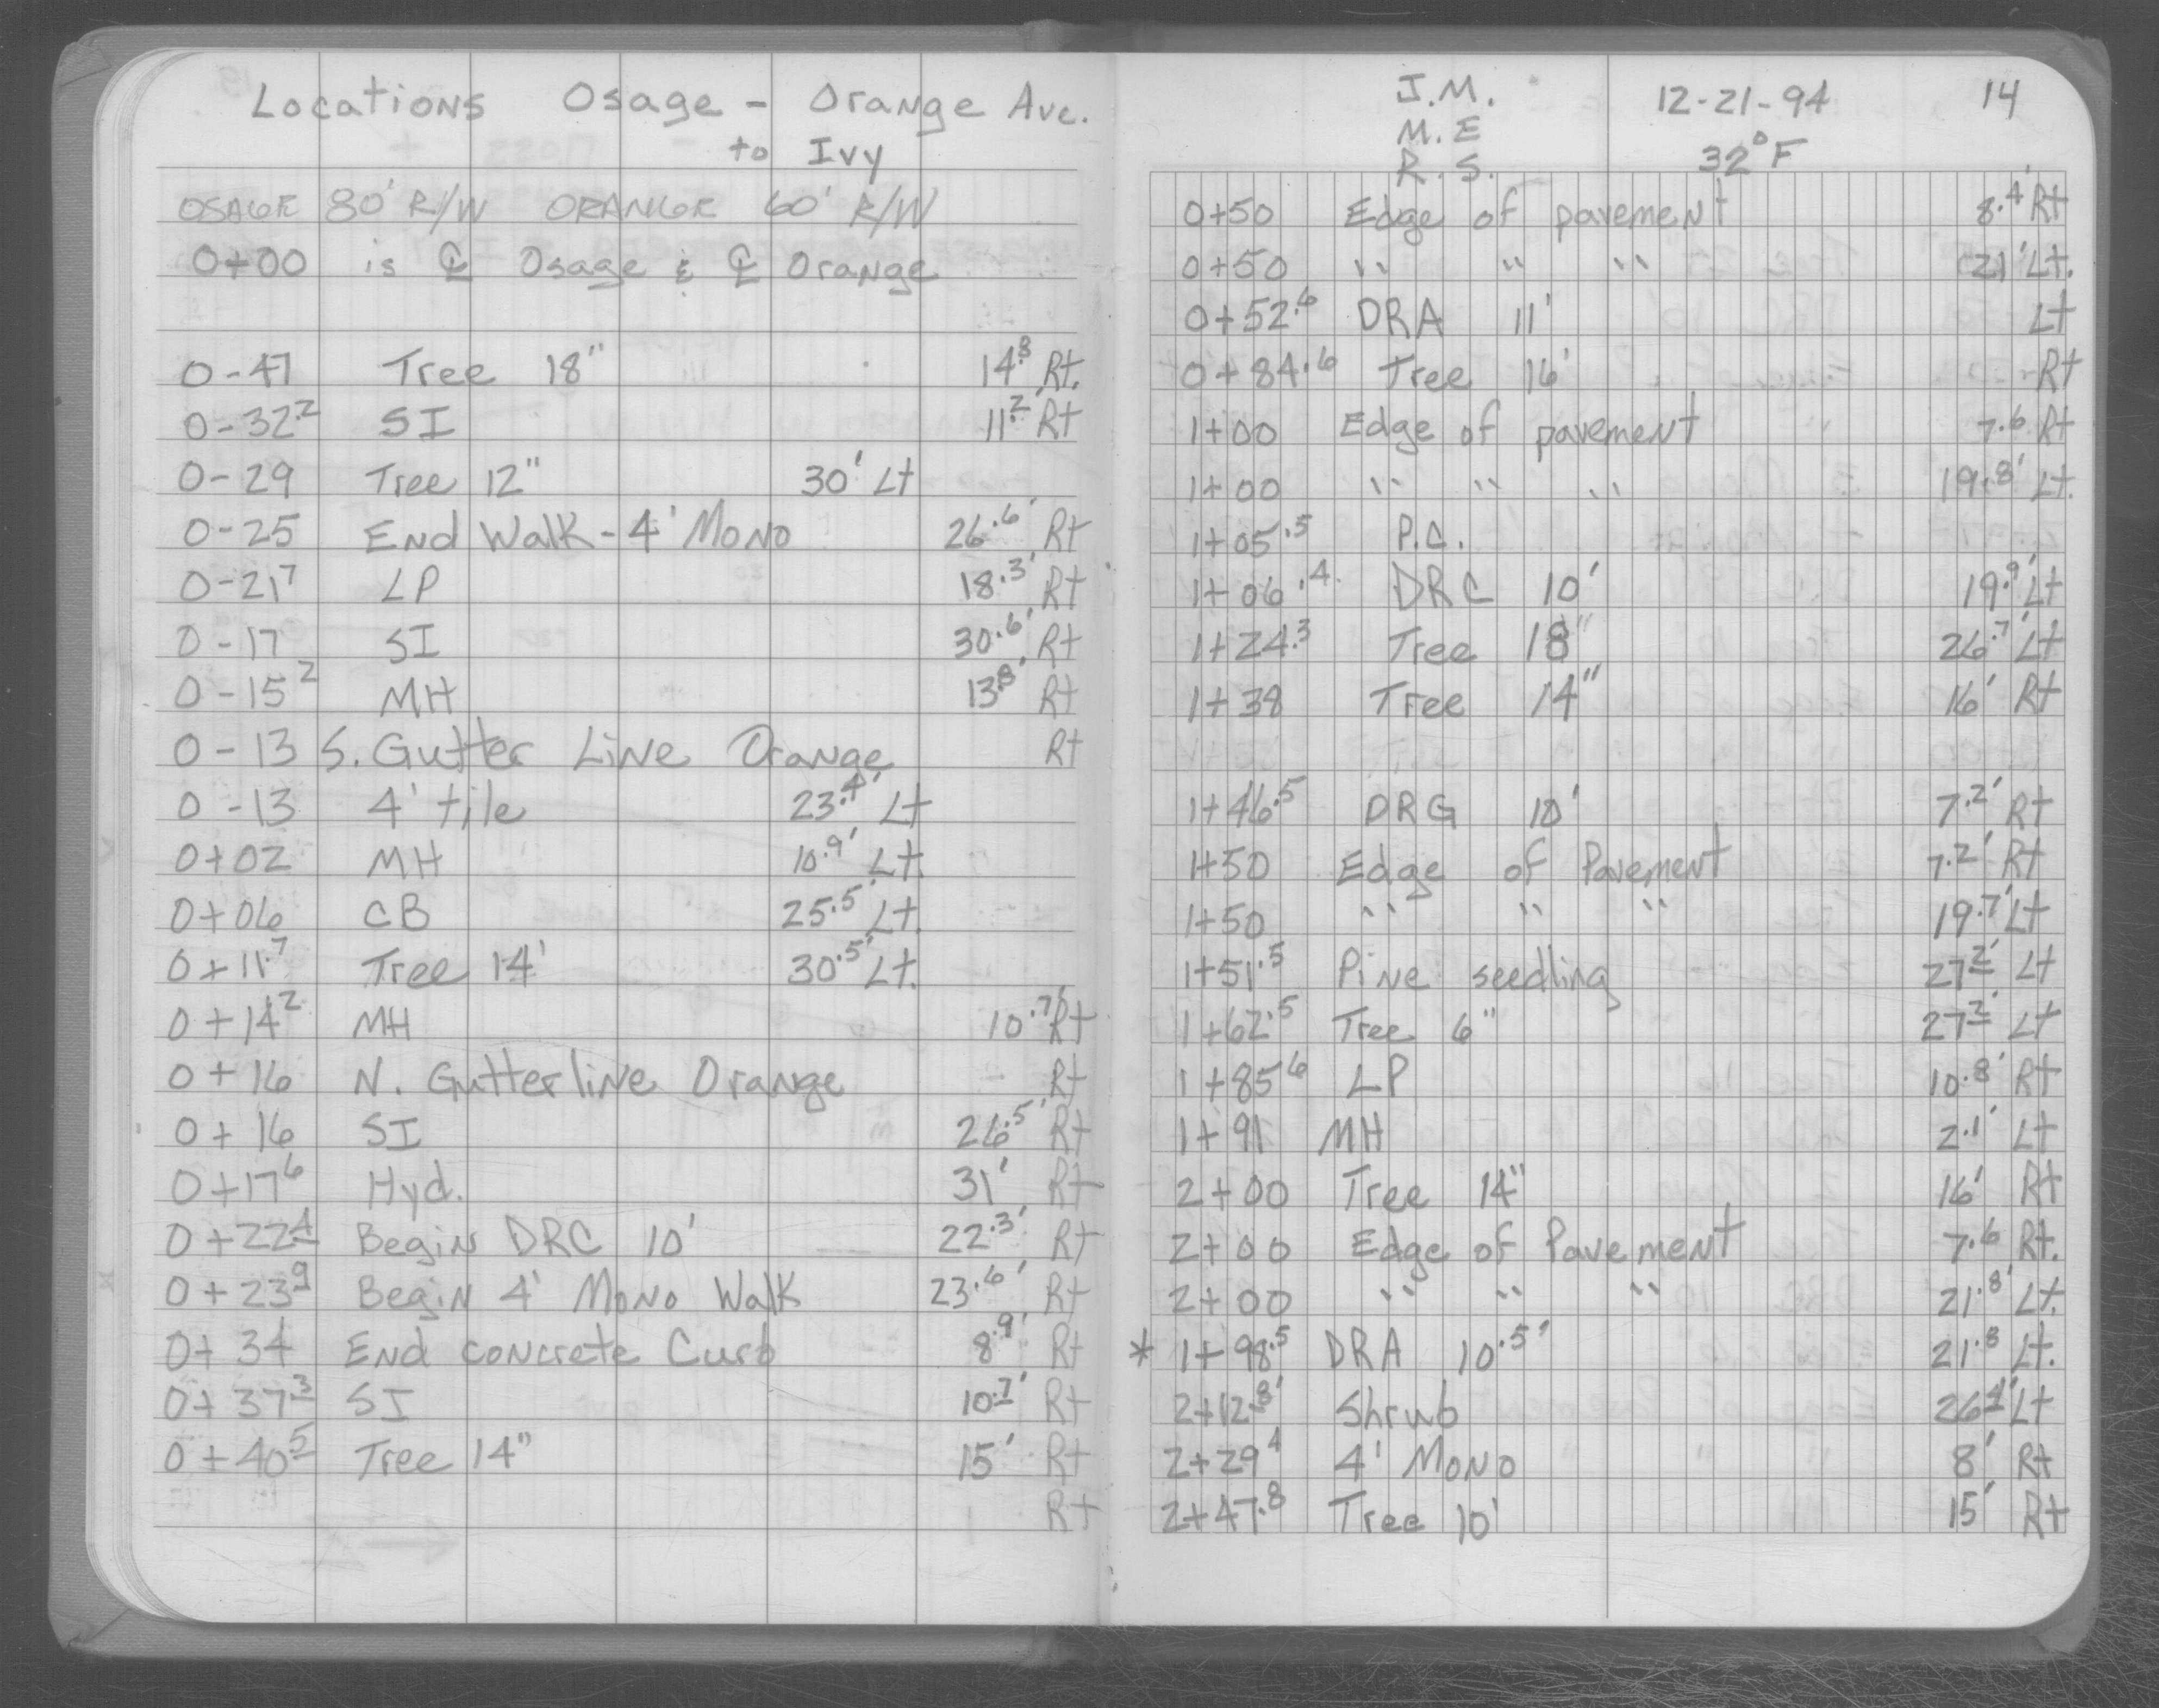 Locations Osage - Orange Ave.
to Ivy
OSAGE 80' R/W ORANGE 60' R/W
0+00 is ℄ Osage & ℄ Orange
0-47 Tree 18" 14.8' Rt.
0-32.2 SI 11.2' Rt
0-29 Tree 12" 30' Lt
0-25 End Walk - 4' Mono 26.6' Rt
0-21.7 LP 18.3' Rt
0-17 SI 30.6' Rt
0-15.2 MH 13.8' Rt
0-13 S. Gutter Line Orange Rt
0-13 4' tile 23.4' Lt
0+02 MH 10.9' Lt.
0+06 CB 25.5' Lt.
0+11.7 Tree 14' 30.5' Lt.
0+14.2 MH 10.7' Rt
0+16 N. Gutterline Orange Rt
0+16 SI 26.5' Rt
0+17.6 Hyd. 31' Rt
0+22.4 Begin DRC 10' 22.3' Rt
0+23.9 Begin 4' Mono Walk 23.6' Rt
0+34 End concrete Curb 8.9' Rt
0+37.3 SI 10.7' Rt
0+40.5 Tree 14" 15' Rt
Rt
J.M. 12-21-94 14
M.E
R.S. 32°F
0+50 Edge of pavement 8.4' Rt
0+50 " " " 21' Lt.
0+52.6 DRA 11' Lt
0+84.6 Tree 16' Rt
1+00 Edge of pavement 7.6 Rt
1+00 " " " 19.8' Lt.
1+05.5 P.C.
1+06.4 DRC 10' 19.9' Lt
1+24.3 Tree 18" 26.7' Lt
1+38 Tree 14" 16' Rt
1+46.5 DRG 10' 7.2' Rt
1+50 Edge of Pavement 7.2' Rt
1+50 " " " 19.7' Lt
1+51.5 Pine seedling 27.2' Lt
1+62.5 Tree 6" 27.2' Lt
1+85.6 LP 10.8' Rt
1+91 MH 2.1' Lt
2+00 Tree 14" 16' Rt
2+00 Edge of Pavement 7.6 Rt.
2+00 " " " 21.8' Lt.
* 1+98.5 DRA 10.5' 21.8 Lt.
2+12.8' Shrub 26.4' Lt
2+29.4 4' Mono 8' Rt
2+47.8 Tree 10' 15' Rt